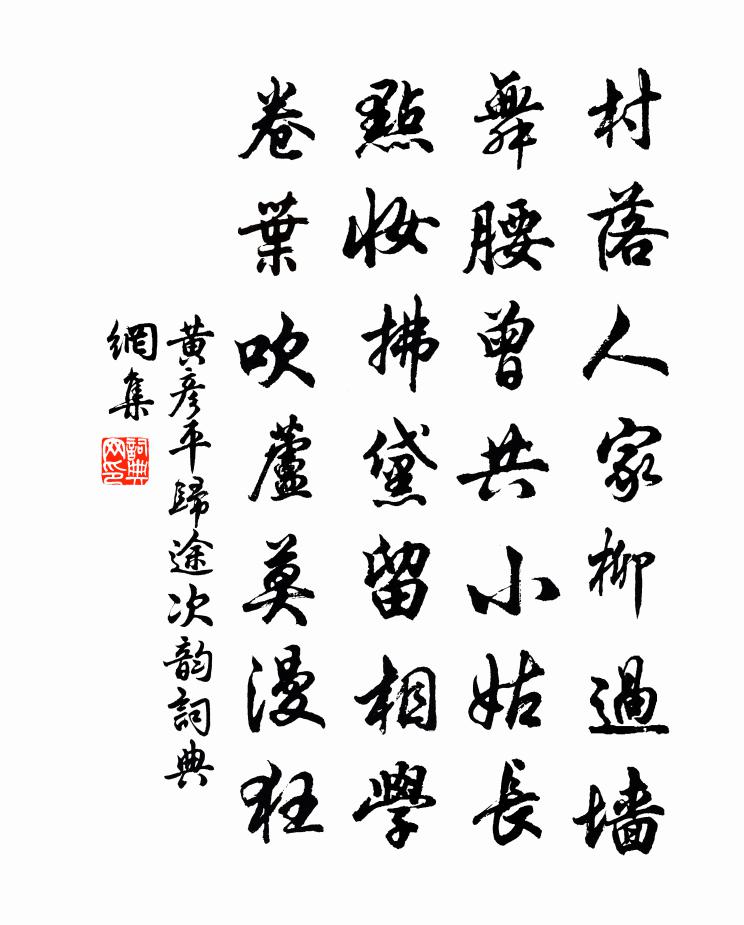 村落人家柳過墙
舞腰曾共小姑長
點妆拂黛留相學
卷葉吹蘆莫漫狂
黄彦平歸途次韵詞典
網集
詞典
网印